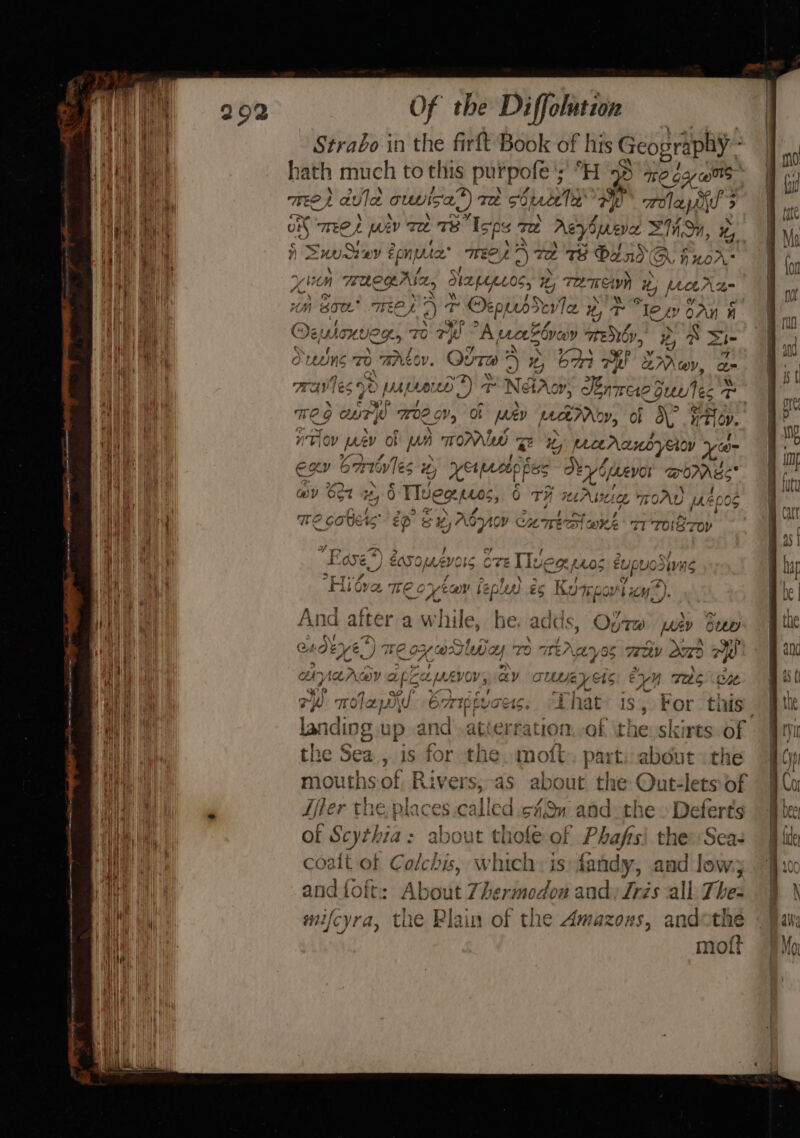 292 Of the Diſſolution
Strabo in the firſt Book of his Geography
hath much to this purpoſe; Ἡ γὸ πρόσχωσις
περὶ αὐτὰ συνίσα) τὰ σόματα τῶν ποταμῶν·
οἷον περὶ μὲν τὰ τοῦ Ἴσρου τὰ λεγόμενα Στήθη, καὶ
ἡ Σκυθῶν ἐρημία· περὶ δὲ τὰ τοῦ Φάσιδος, ἡ Κολ-
χικὴ παραλία, δίαμμος, καὶ ταπεινὴ καὶ μαλα-
κὴ οὖσα· περὶ δὲ τὸν Θερμώδοντα καὶ τὸν Ἶριν ὅλη ἡ
Θεμίσκυρα, τὸ τῶν Ἀμαζόνων πεδίον, καὶ τῆς Σι-
δηνῆς τὸ πλέον. Οὕτω δὲ καὶ ἐπὶ τῶν ἄλλων, ἅ-
παντες γὸ μιμοῦν) τὸν Νεῖλον, ἐξηπειροῦντες τὸν
πρὸ αὐτῶν πόρον, οἱ μὲν μᾶλλον, οἱ δὲ ἧττον.
ἧττον μὲν οἱ μὴ πολλὴν καὶ μαλακόγειον χώ-
ραν ἐπιόντες καὶ χειμάρρους δεχόμενοι πολλὲς·
ὧν ἐστι καὶ ὁ Πύραμος, ὁ τῇ Κιλικίᾳ πολὺ μέρος
προσθεὶς· ἐφ᾽ οὗ καὶ λόγιον ἐκπέπτωκέ τι τοιοῦτον
Ἔσσε) ἐσσομένοις ὅτε Πύραμος εὐρυοδίνης
Ἠϊόνα προχέων ἱερὴν ἐς Κύπρον ἵκη).
And after a while, he adds, Οὕτω μὲν οὖν
ἐνδέχε) προσχωσθῆναι τὸ πέλαγος πᾶν ἀπὸ τῶν
αἰγιαλῶν ἀρξάμενον, ἂν συνεχεῖς ἔχῃ τὰς ἐκ
τῶν ποταμῶν ἐπιρρύσεις. That is, For this
landing up and atterration of the skirts of
the Sea, is for the moſt part about the
mouths of Rivers, as about the Out-lets of
Iſter the places called ςήθη and the Deſerts
of Scythia: about thoſe of Phaſis the Sea-
coaſt of Colchis, which is ſandy, and low,
and ſoft: About Thermodon and Iris all The-
miſcyra, the Plain of the Amazons, and the
moſt